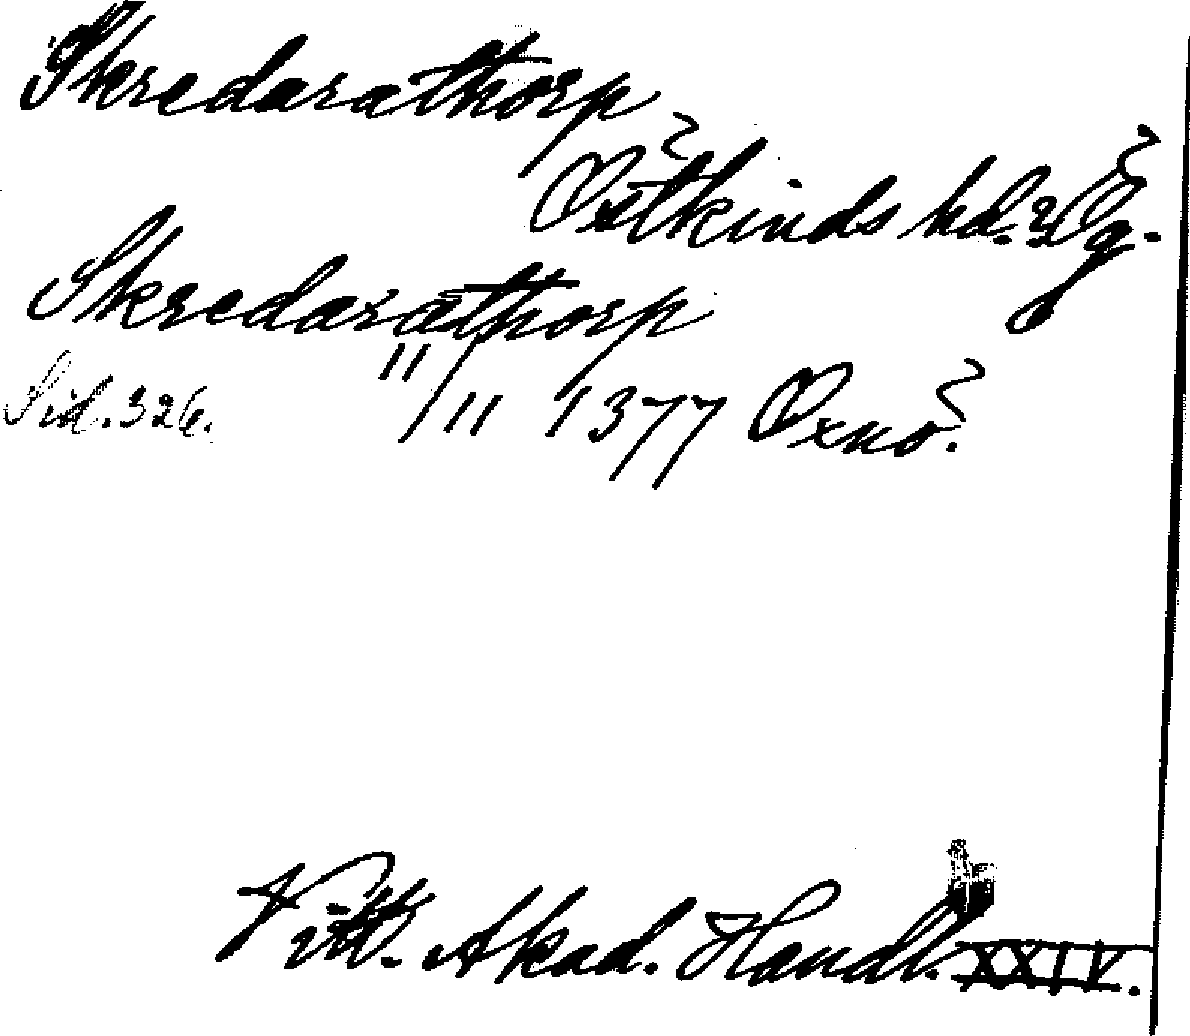 Skredarathorp
Östkinds hd. Ög.
Skredarathorp
Sid. 326. 11/11 1377 Oxnö.
Vitt. Akad. Handl. XXIV.